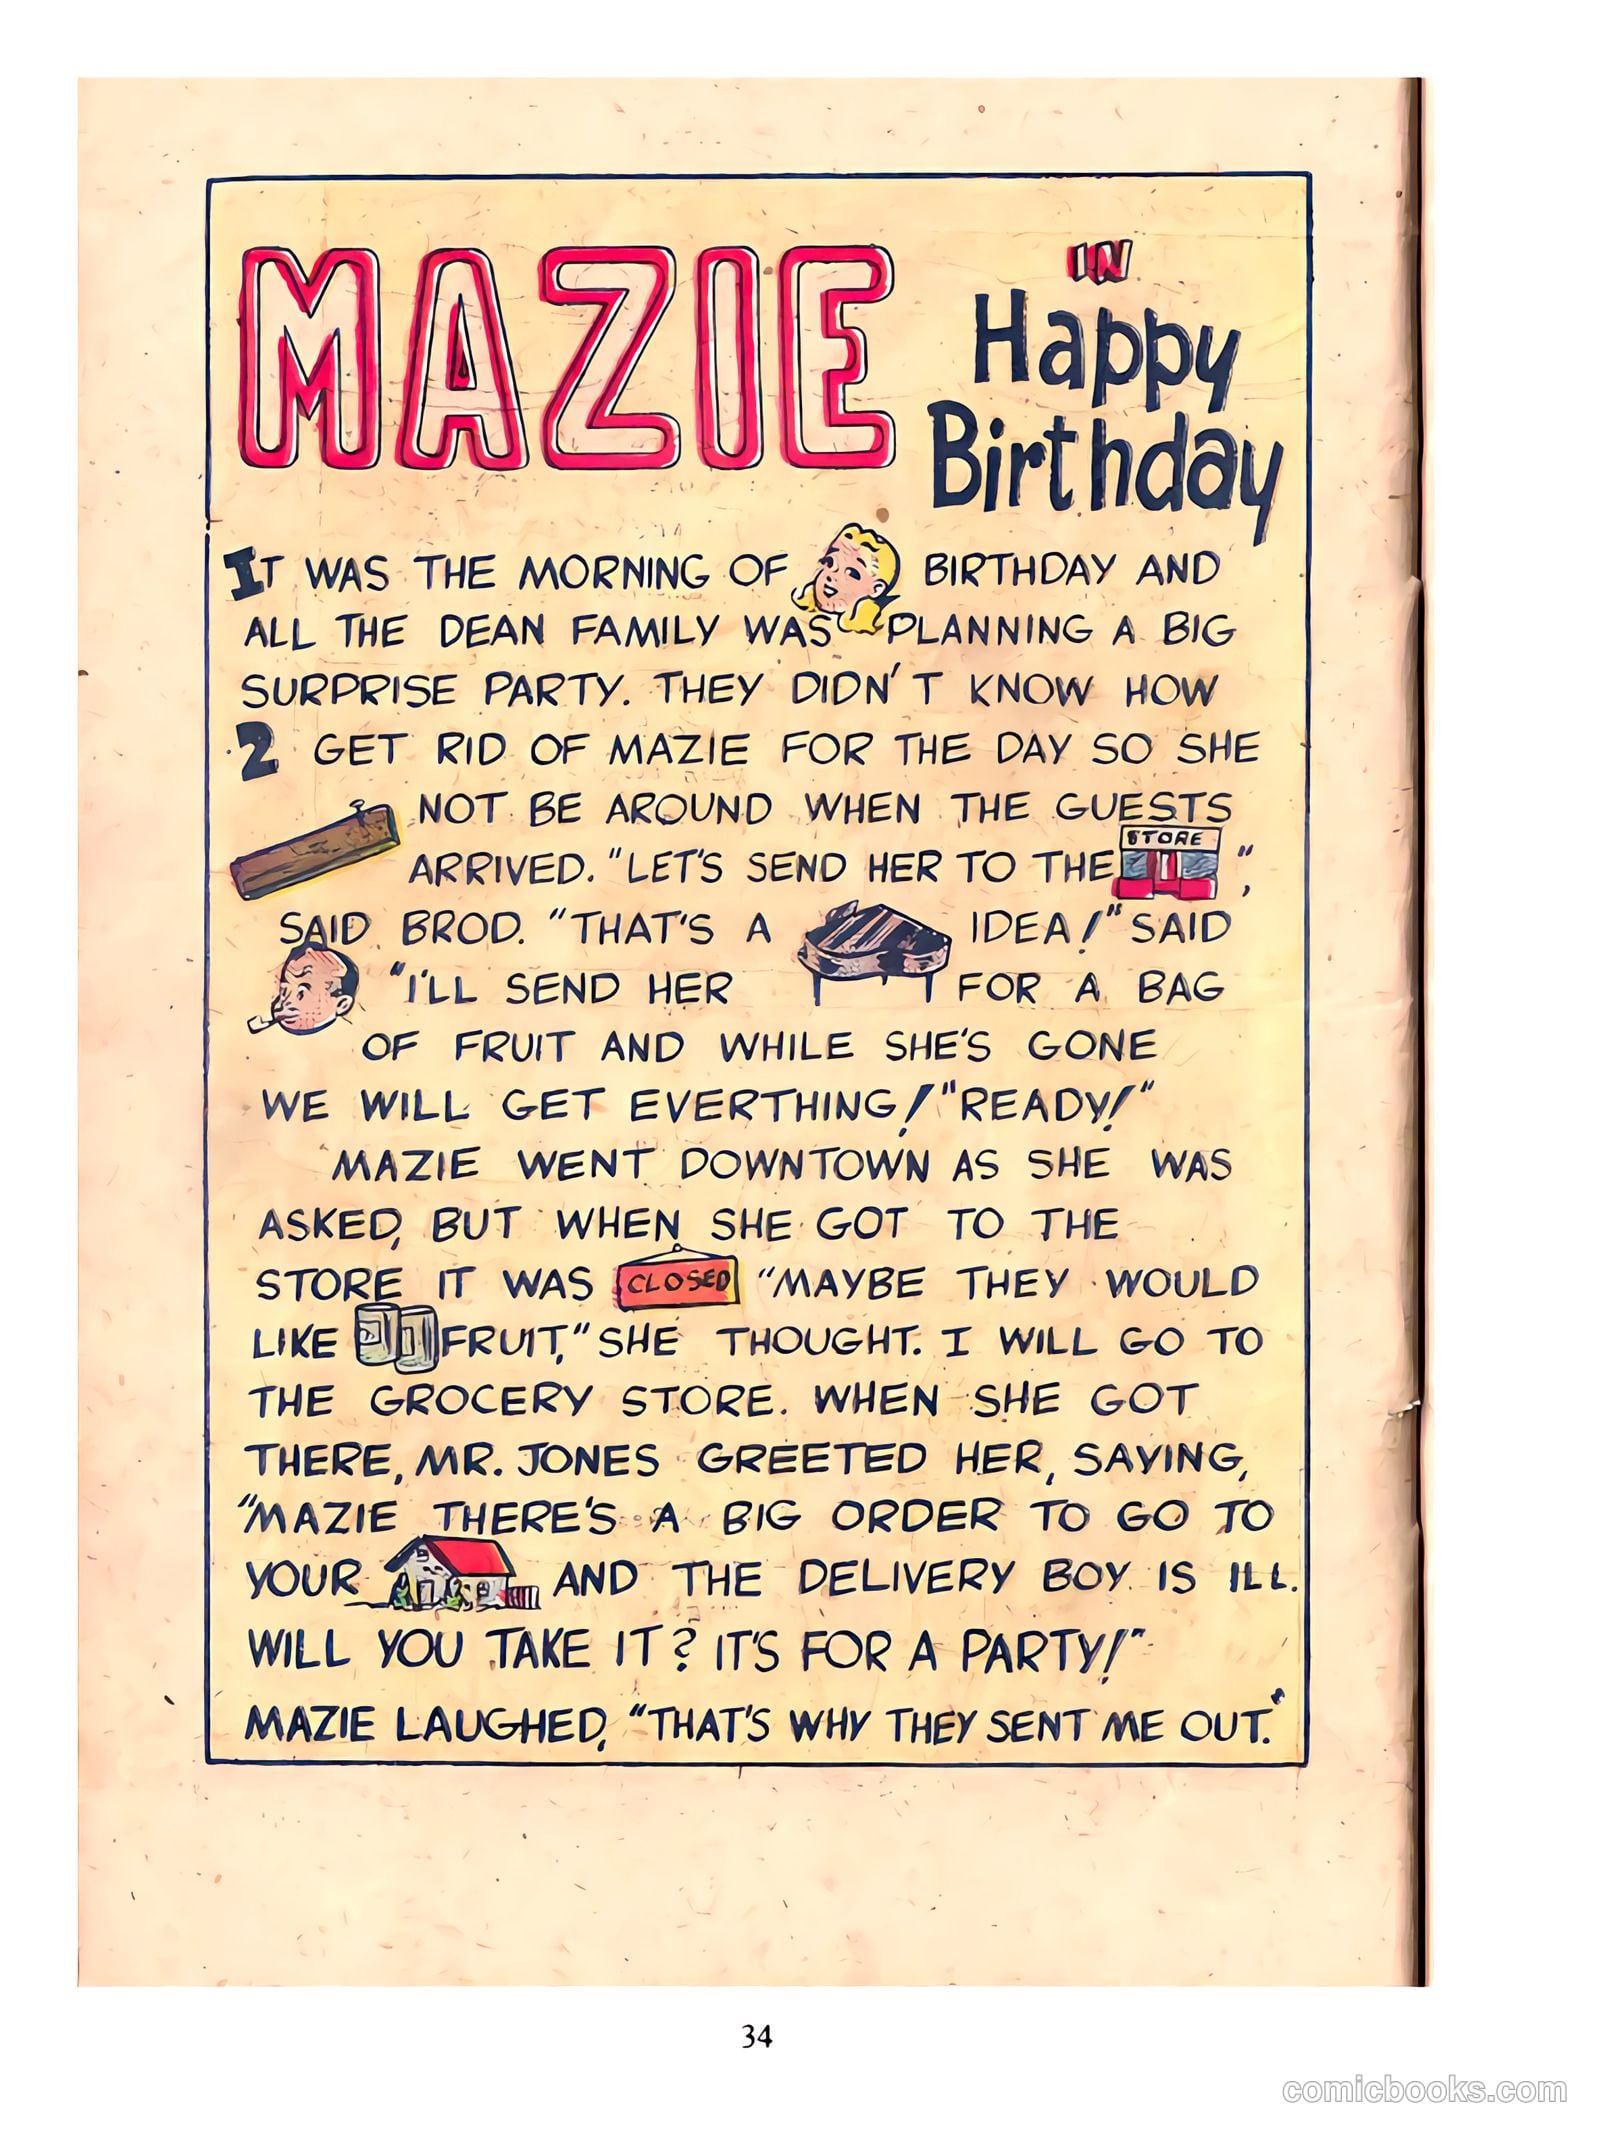 MAZIE
IN
Happy
Birthday
IT WAS THE MORNING OF BIRTHDAY AND
ALL THE DEAN FAMILY WAS PLANNING A BIG
SURPRISE PARTY. THEY DIDN'T KNOW HOW
2 GET RID OF MAZIE FOR THE DAY SO SHE
NOT BE AROUND WHEN THE GUESTS
ARRIVED. "LET'S SEND HER TO THE STORE",
SAID BROD. "THAT'S A IDEA!" SAID
"I'LL SEND HER FOR A BAG
OF FRUIT AND WHILE SHE'S GONE
WE WILL GET EVERTHING!" READY!"
MAZIE WENT DOWNTOWN AS SHE WAS
ASKED, BUT WHEN SHE GOT TO THE
STORE IT WAS CLOSED "MAYBE THEY WOULD
LIKE FRUIT," SHE THOUGHT. I WILL GO TO
THE GROCERY STORE. WHEN SHE GOT
THERE, MR. JONES GREETED HER, SAYING,
"MAZIE THERE'S A BIG ORDER TO GO TO
YOUR AND THE DELIVERY BOY IS ILL.
WILL YOU TAKE IT? IT'S FOR A PARTY!"
MAZIE LAUGHED, "THAT'S WHY THEY SENT ME OUT."
34
comicbooks.com